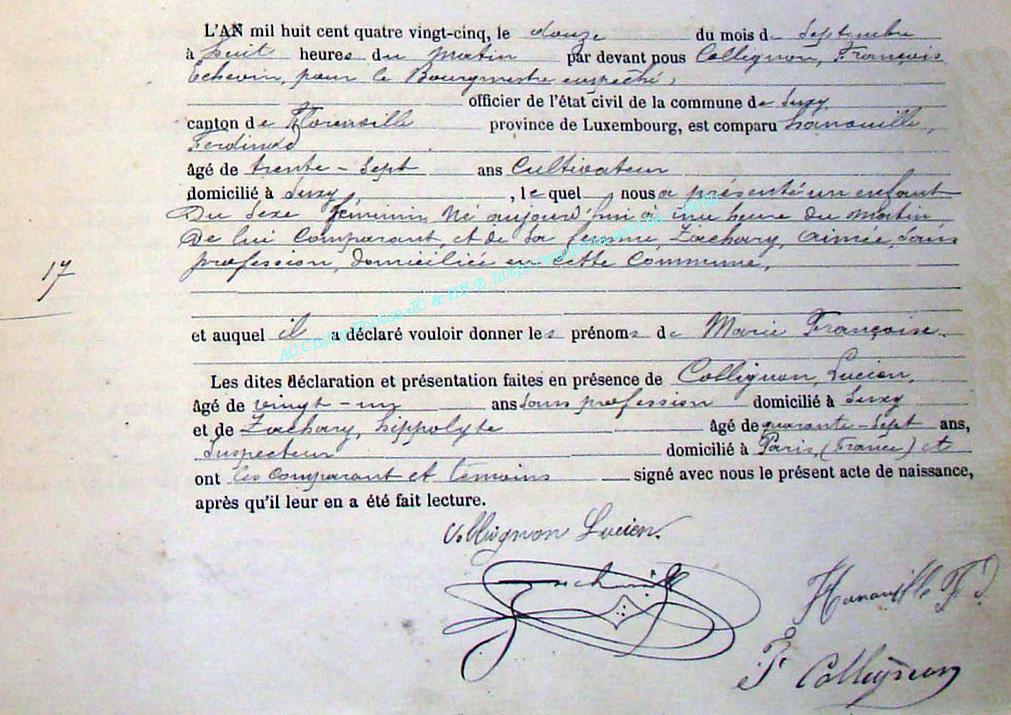 L'AN mil huit cent quatre vingt-cinq, le douze du mois de Septembre
à huit heures du Matin par devant nous Collignon, François
Echevin, pour le Bourgmestre empêché,
officier de l'état civil de la commune de Suxy
canton de Florenville province de Luxembourg, est comparu hanouille,
Ferdinand
âgé de trente-sept ans Cultivateur
domicilié à Suxy, , lequel nous a présenté un enfant
Du sexe féminin, Né aujourd'hui à une heure du matin
De lui Comparant, et de sa femme, Zachary, aimée, sans
profession, domiciliée en cette Commune,
17
et auquel il a déclaré vouloir donner les prénoms de Marie Françoise.
Les dites déclaration et présentation faites en présence de Collignon, Lucien,
âgé de vingt-un ans sans profession domicilié à Suxy
et de Zachary, hippolyte âgé de quarante-sept ans,
Inspecteur domicilié à Paris, (France) et
ont les comparant et temoins signé avec nous le présent acte de naissance,
après qu'il leur en a été fait lecture.
Collignon Lucien.
Hanouille F D
F Collignon